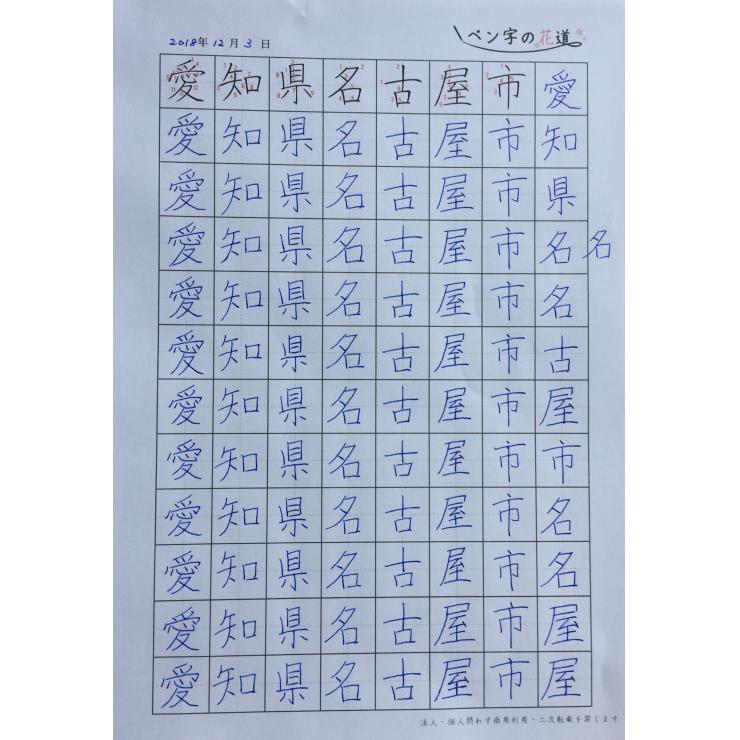 ペン字の花道
2018年12月3日
愛知県名古屋市愛
愛知県名古屋市知
愛知県名古屋市県
愛知県名古屋市名名
愛知県名古屋市名
愛知県名古屋市古
愛知県名古屋市屋
愛知県名古屋市市
愛知県名古屋市名
愛知県名古屋市名
愛知県名古屋市屋
愛知県名古屋市屋
法人・個人問わず商用利用・二次転載を禁じます